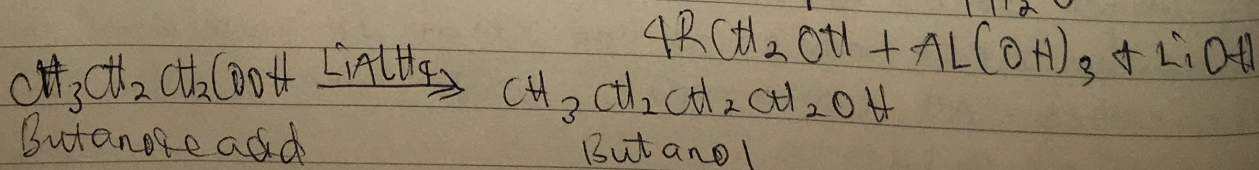 4RCH₂OH + AL(OH)₃ + LiOH
CH₃CH₂CH₂COOH LiAlH₄→ CH₃CH₂CH₂CH₂OH
Butanol